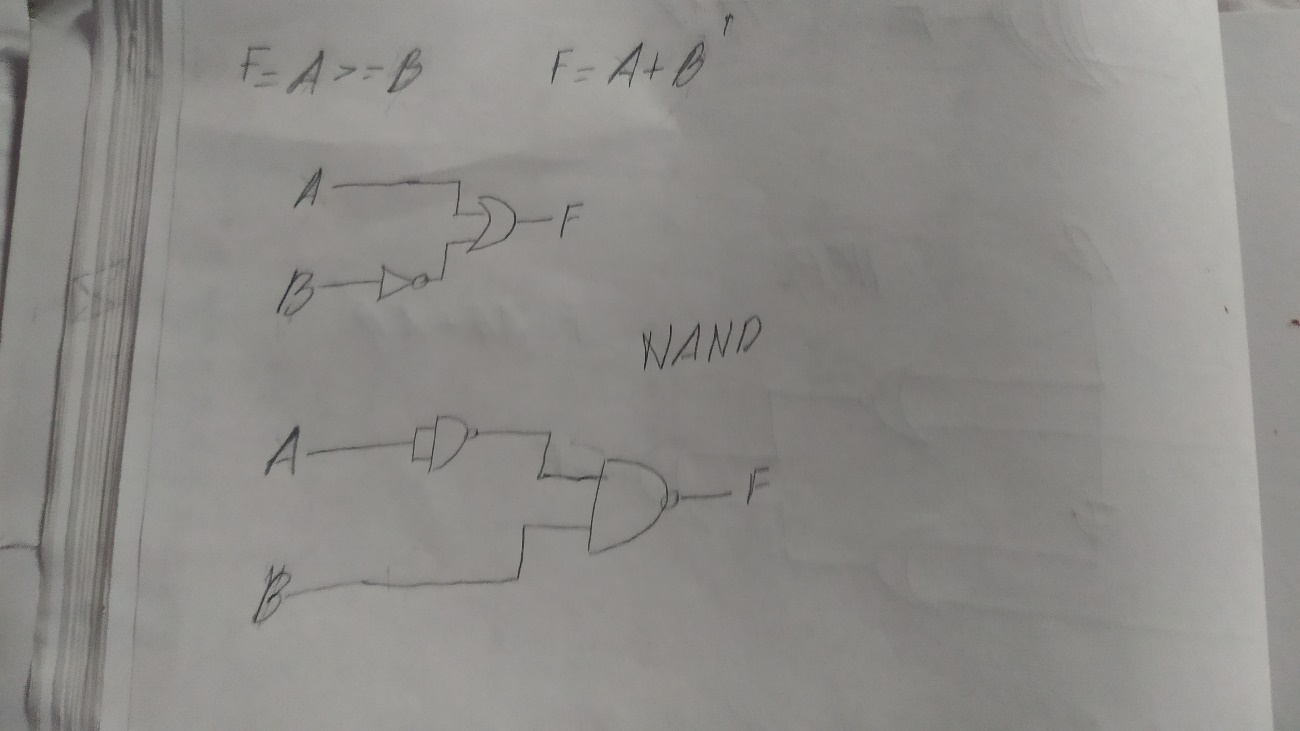 F=A>=B F=A+B'
A
F
B
NAND
A
F
B